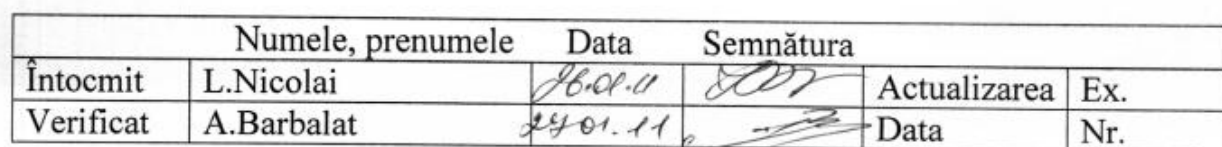 Numele, prenumele Data Semnătura
Întocmit L.Nicolai 26.01.11 Actualizarea Ex.
Verificat A.Barbalat 27.01.11 Data Nr.